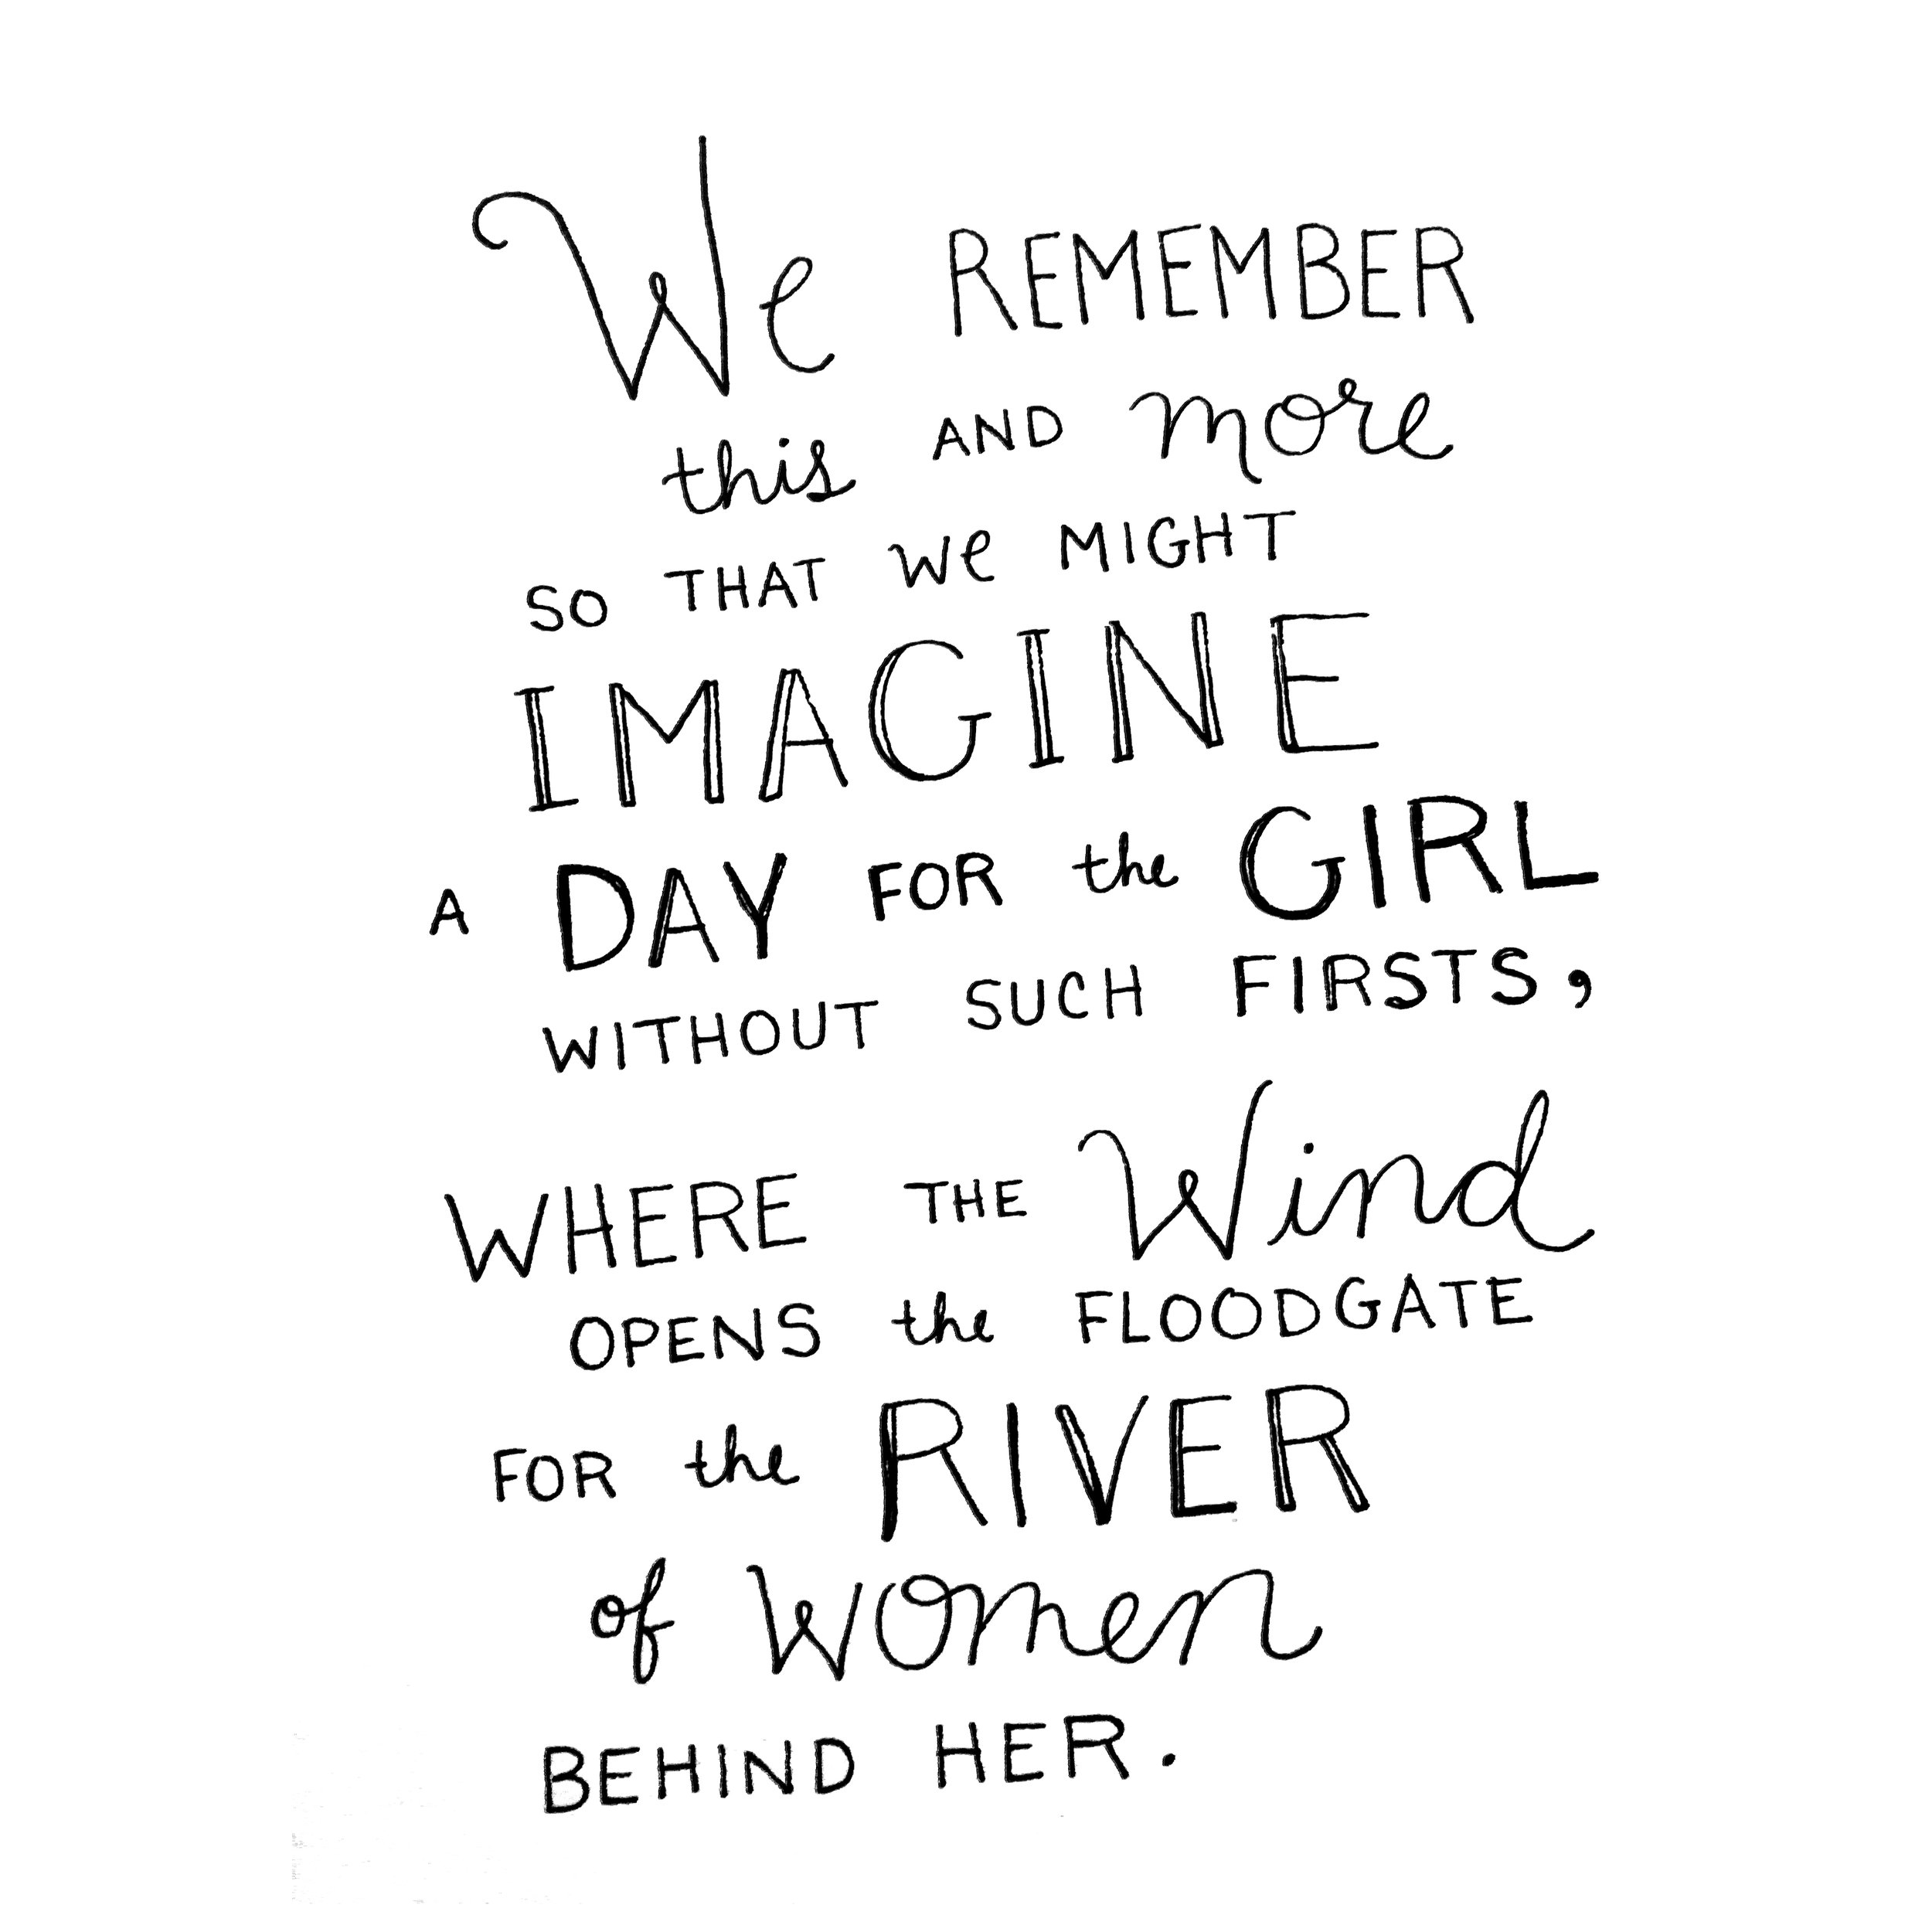 We REMEMBER
this AND more
SO THAT we MIGHT
IMAGINE
A DAY FOR the GIRL
WITHOUT SUCH FIRSTS,
WHERE THE Wind
OPENS the FLOODGATE
FOR the RIVER
of women
BEHIND HER.